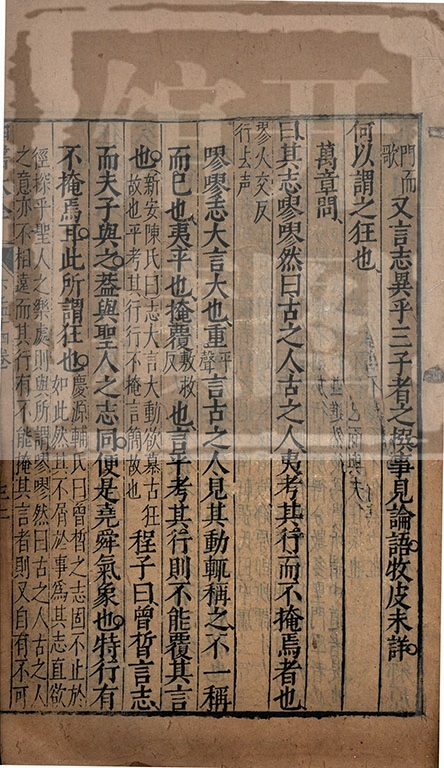 門而歌
又言志異乎三子者之撰事見論語牧皮未詳
何以謂之狂也
萬章問
曰其志嘐嘐然曰古之人古之人夷考其行而不掩焉者也
嘐火交反
行去声
嘐嘐志大言大也重平聲言古之人見其動輒稱之不一稱
而已也夷平也掩覆敷救反也言平考其行則不能覆其言
也新安陳氏曰志大言大動欲慕古狂
故也平考其行行不掩言簡故也程子曰曾晳言志
而夫子與之蓋與聖人之志同便是堯舜氣象也特行有
不掩焉耳此所謂狂也慶源輔氏曰曾晳之志固不止於
如此然其不屑於事為其志直欲
徑探乎聖人之樂處則與所謂嘐嘐然曰古之人古之人
之意亦不相遠而其行有不能掩其言者則又自有不可